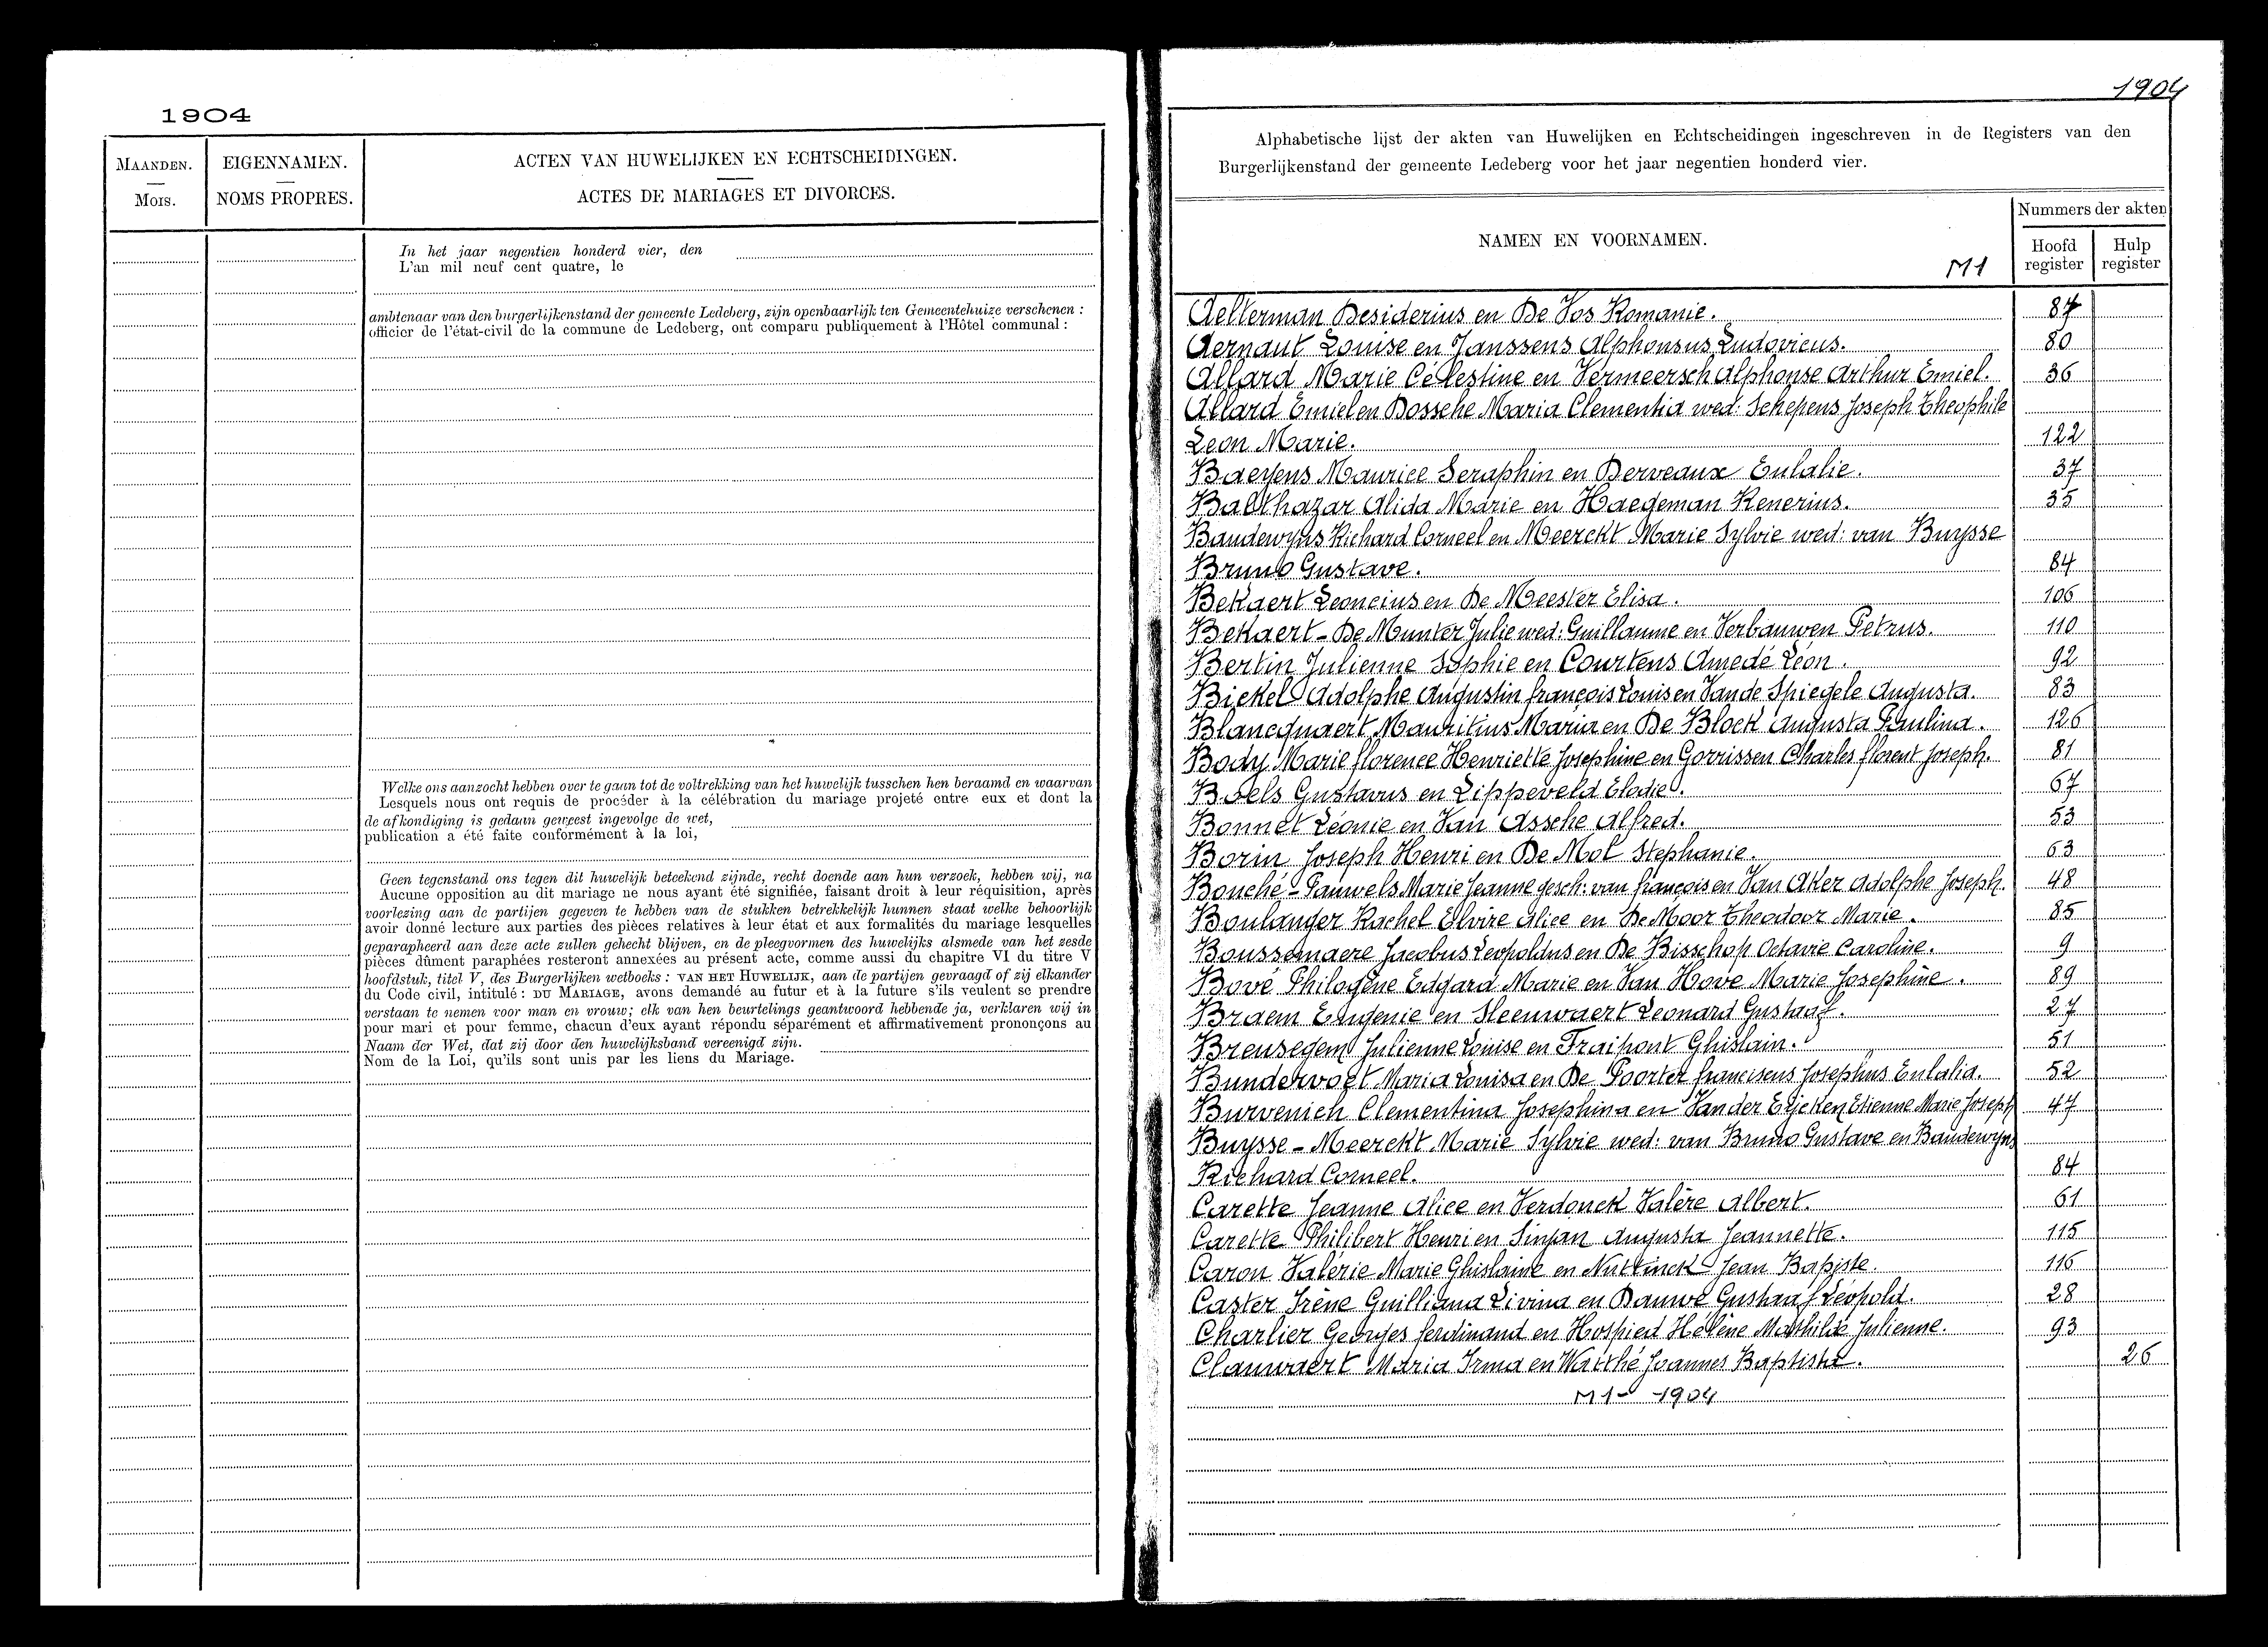 1904
MAANDEN.
MOIS.
EIGENNAMEN.
NOMS PROPRES.
ACTEN VAN HUWELIJKEN EN ECHTSCHEIDINGEN.
ACTES DE MARIAGES ET DIVORCES.
In het jaar negentien honderd vier, den
L'an mil neuf cent quatre, le
ambtenaar van den burgerlijkenstand der gemeente Ledeberg, zijn openbaarlijk ten Gemeentehuize verschenen :
officier de l'état-civil de la commune de Ledeberg, ont comparu publiquement à l'Hôtel communal :
Welke ons aanzocht hebben over te gaan tot de voltrekking van het huwelijk tusschen hen beraamd en waarvan
Lesquels nous ont requis de procéder à la célébration du mariage projeté entre eux et dont la
de afkondiging is gedaan geweest ingevolge de wet,
publication a été faite conformément à la loi,
Geen tegenstand ons tegen dit huwelijk beteekend zijnde, recht doende aan hun verzoek, hebben wij, na
Aucune opposition au dit mariage ne nous ayant été signifiée, faisant droit à leur réquisition, après
voorlezing aan de partijen gegeven te hebben van de stukken betrekkelijk hunnen staat welke behoorlijk
avoir donné lecture aux parties des pièces relatives à leur état et aux formalités du mariage lesquelles
geparapheerd aan deze acte zullen gehecht blijven, en de pleegvormen des huwelijks alsmede van het zesde
pièces dûment paraphées resteront annexées au présent acte, comme aussi du chapitre VI du titre V
hoofdstuk, titel V, des Burgerlijken wetboeks : VAN HET HUWELIJK, aan de partijen gevraagd of zij elkander
du Code civil, intitulé : DU MARIAGE, avons demandé au futur et à la future s'ils veulent se prendre
verstaan te nemen voor man en vrouw; elk van hen beurtelings geantwoord hebbende ja, verklaren wij in
pour mari et pour femme, chacun d'eux ayant répondu séparément et affirmativement prononçons au
Naam der Wet, dat zij door den huwelijksband vereenigd zijn.
Nom de la Loi, qu'ils sont unis par les liens du Mariage.
1904
Alphabetische lijst der akten van Huwelijken en Echtscheidingen ingeschreven in de Registers van den
Burgerlijkenstand der gemeente Ledeberg voor het jaar negentien honderd vier.
NAMEN EN VOORNAMEN.
M1
Nummers der akten
Hoofd register
Hulp register
Aelterman Desiderius en De Vos Romanie. 87
Aernaut Louise en Janssens Alphonsus Ludovicus. 80
Allard Marie Célestine en Vermeersch Alphonse Arthur Emiel. 36
Allard Emiel en Bossche Maria Clementia wed: Schepens Joseph Theophile
Leon Marie. 122
Baeyens Maurice Seraphin en Derveaux Eulalie. 37
Balthazar Alida Marie en Haegeman Renerius. 35
Baudewyns Richard Corneel en Meerckt Marie Sylvie wed: van Buysse
Bruno Gustave. 84
Bekaert Leoncius en De Meester Elisa. 106
Bekaert - De Munter Julie wed: Guillaume en Verbauwen Petrus. 110
Bertin Julienne Sophie en Courtens Amedé Léon. 92
Bickel Adolphe Augustin françois Louis en Vande Spiegele Augusta. 83
Blancquaert Mauritius Maria en De Block Augusta Paulina. 126
Body Marie florence Henriette Josephine en Gorrissen Charles florent Joseph. 81
Boels Gustavus en Lippeveld Elodie. 67
Bonnet Léonie en Van Assche Alfred. 53
Borin Joseph Henri en De Mol Stephanie. 63
Bouché - Pauwels Marie Jeanne gesch: van françois en Van Aker Adolphe Joseph. 48
Boulanger Rachel Elvire Alice en De Moor Theodoor Marie. 85
Boussemaere Jacobus Leopoldus en De Bisschop Octavie Caroline. 9
Bové Philogène Edgard Marie en Van Hove Marie Josephine. 89
Braem Eugenie en Sleeuwaert Leonard Gustaaf. 27
Breusegem Julienne Louise en Fraipont Ghislain. 51
Bundervoet Maria Louisa en De Poorter franciscus Josephus Eulalia. 52
Burvenich Clementina Josephina en Vander Eycken Etienne Marie Joseph 47
Buysse - Meerckt Marie Sylvie wed: van Bruno Gustave en Baudewyns
Richard Corneel. 84
Carette Jeanne Alice en Verdonck Valère Albert. 61
Carette Philibert Henri en Sinjan Augusta Jeannette. 115
Caron Valérie Marie Ghislaine en Nuttinck Jean Baptiste. 116
Caster Irène Guilliana Livina en Dauwe Gustaaf Léopold. 28
Charlier Georges ferdinand en Hospied Hélène Mathilde Julienne. 93
Clauwaert Maria Irma en Watthé Joannes Baptista. 26
M1- 1904